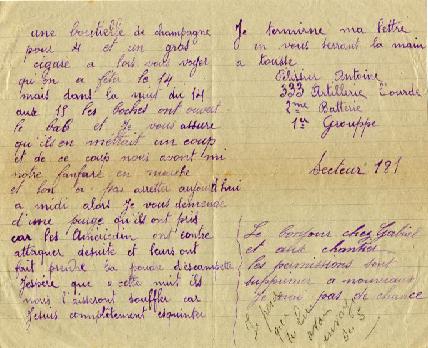 une bouteille de champagne
pour 4 et un gros
cigare a lors vous voyer
qu'on a fêter le 14
mais dans la nuit du 14
au 15 les boches ont ouvert
le bal et je vous assure
qu'ils en mettait un coup
et de ce coup nous avont mi
notre fanfare en marche
et lon a pas arretter aujourd'hui
a midi alors Je vous demenge
d'une purge qu'ils ont pris
car les Américain ont contre
attaquer desuite et leurs ont
fait prendre la poudre d'escampette
J'espère que cette nuit ils
nous laisseront souffler car
Je suis complètement esquinter
Je termine ma lettre
en vous serrant la main
a tousse
Pélissier Antoine
333 Artillerie Lourde
2me Batterie
1er Grouppe
Secteur 181
Le bonjour chez Gabriel
et aux chantier
les permissions sont
supprimer a nouveaux
Je pas de chance